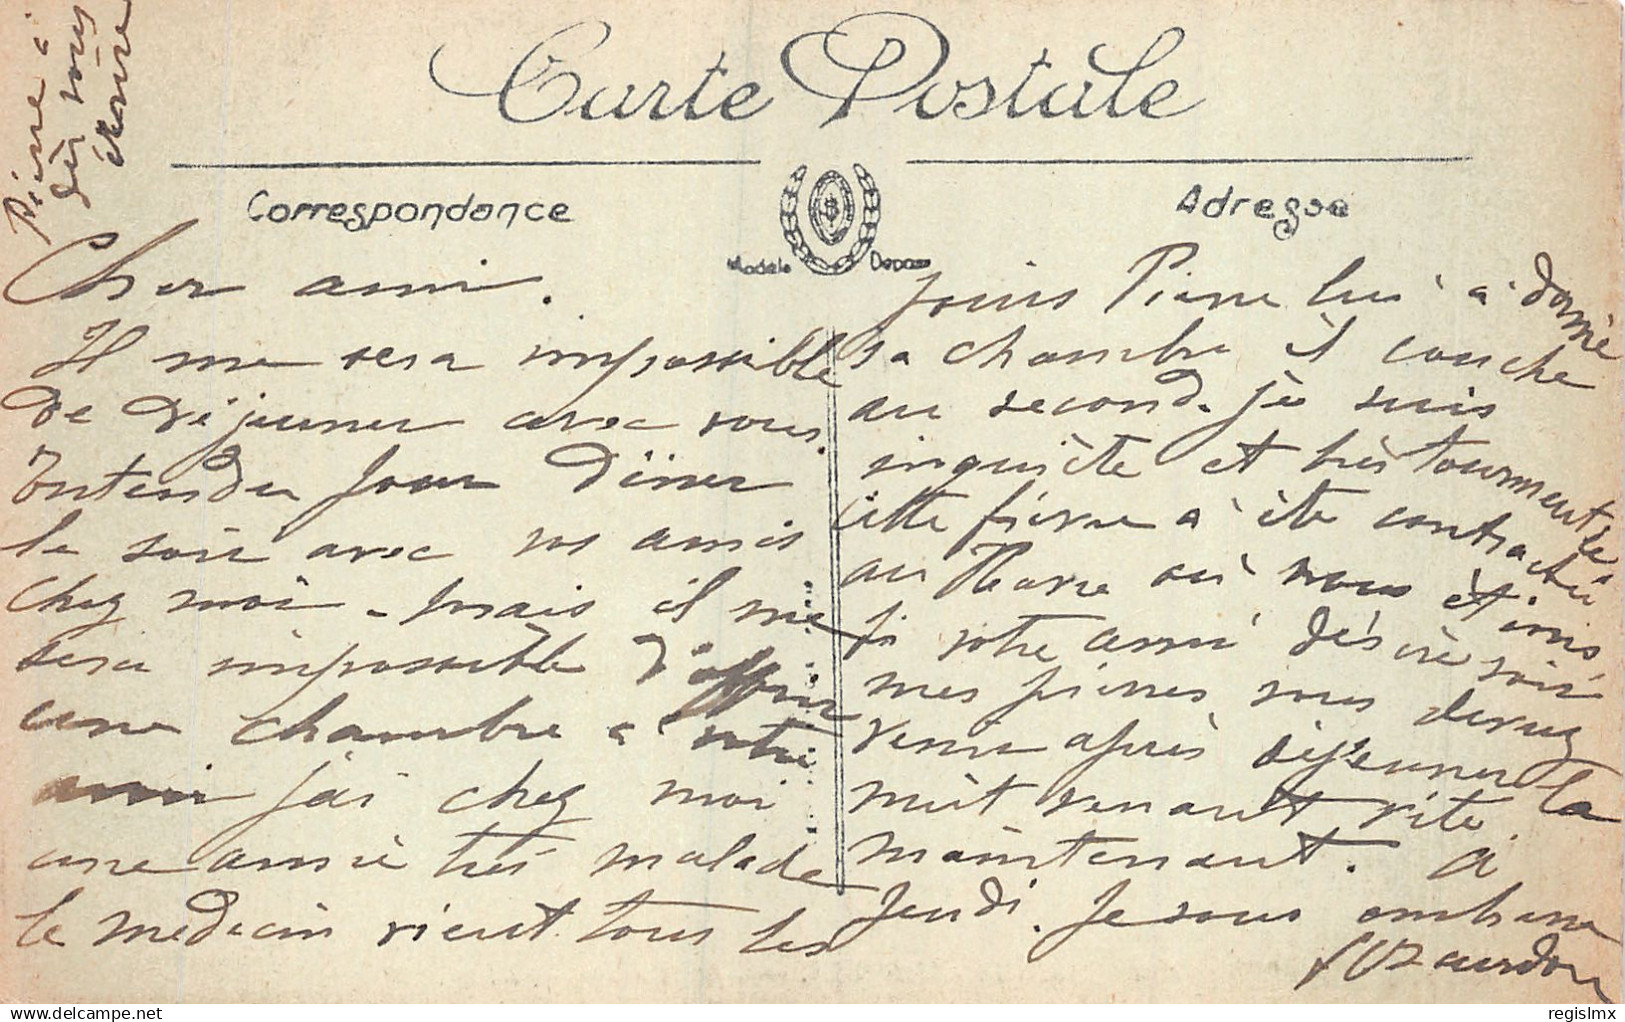 Carte Postale
Correspondance
Adresse
Modèle Déposé
Pierre a
dès vous
écrire
Cher ami.
Il me sera impossible
de déjeuner avec vous.
Entendu pour dîner
le soir avec vos amis
chez moi - mais il me
sera impossible d'offrir
une chambre a votre
ami j'ai chez moi
une amie très malade
le medecin vient tous les
jours Pierre lui a donné
sa chambre il couche
au second. je suis
inquiète et très tourmentée
cette fièvre a été contractée
au Havre où nous étions
si votre ami désire voir
mes pierres vous devrez
venir après déjeuner la
nuit venant vite
maintenant. a
Jeudi. Je vous embrasse